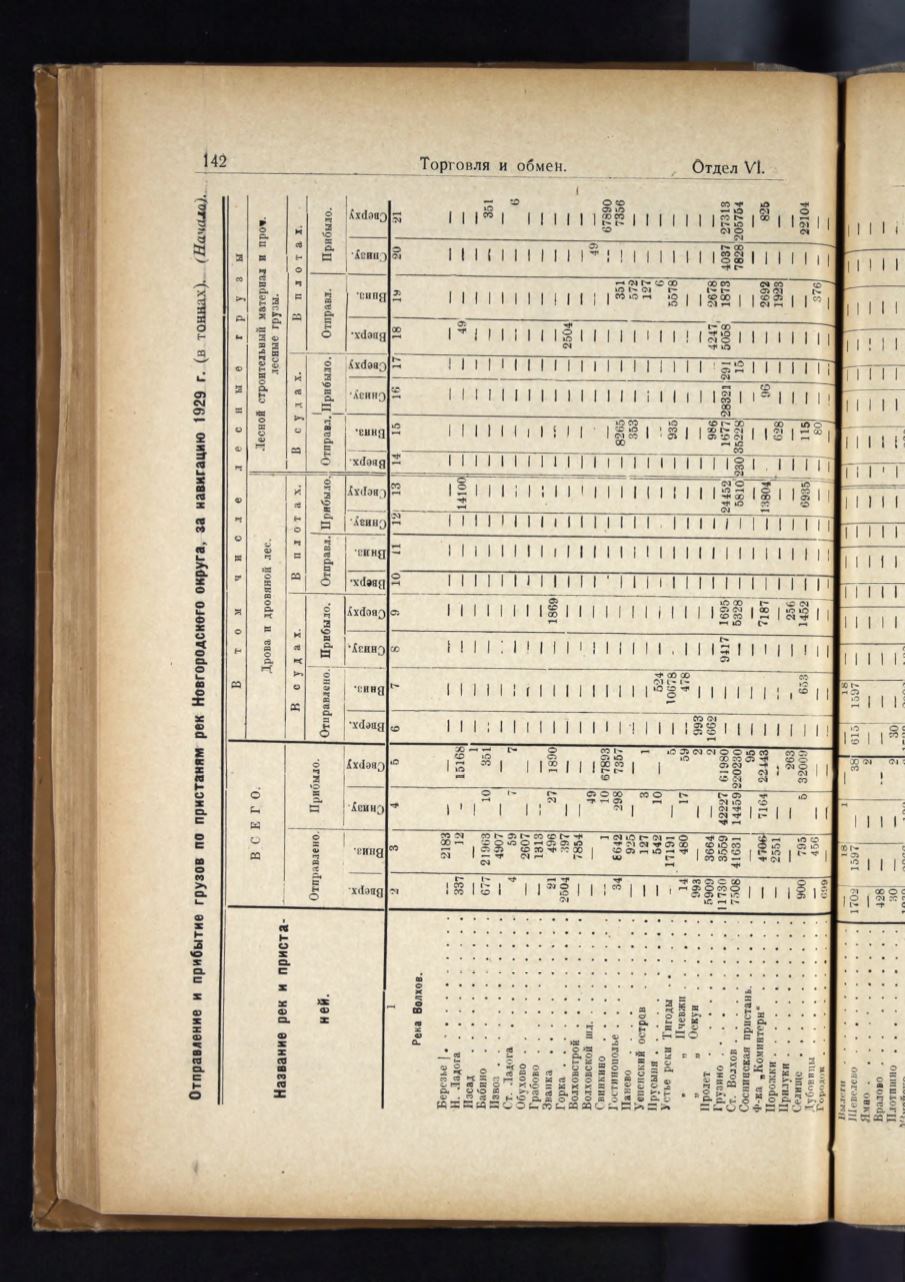 142
Торговля и обмен.
Отдел VI.
Отправление и прибытие грузов по пристаням рек Новгородского округа, за навигацию 1929 г. (в тоннах). (Начало).
Название рек и пристаней.
ВСЕГО.
В том числе лесные грузы
Дрова и дровяной лес.
Лесной строительный материал и проч. лесные грузы.
В судах. В плотах. В судах. В плотах.
Отправлено. Прибыло. Отправлено. Прибыло. Отправл. Прибыло. Отправл. Прибыло. Отправл. Прибыло.
Вверх. Вниз. Снизу. Сверху Вверх. Вниз. Снизу. Сверху Вверх. Вниз. Снизу. Сверху Вверх. Вниз. Снизу. Сверху Вверх. Вниз. Снизу. Сверху
1 2 3 4 5 6 7 8 9 10 11 12 13 14 15 16 17 18 19 20 21
Река Волхов.
Березье — 2183 — — — — — — — — — — — — — — — — — —
Н. Ладога 337 12 — 15168 — — — — — — — 14100 — — — — 49 — — —
Пасад — — — 1 — — — — — — — — — — — — — — — —
Бабино 677 21963 10 351 — — — — — — — — — — — — — — — 351
Извоз — 4907 — — — — — — — — — — — — — — — — — —
Ст. Ладога 4 59 7 7 — — — — — — — — — — — — — — — 6
Обухово — 2607 — — — — — — — — — — — — — — — — — —
Грабово — 1313 — — — — — — — — — — — — — — — — — —
Званка 21 496 27 1890 — — — 1869 — — — — — — — — — — — —
Горка 2504 397 — — — — — — — — — — — — — — 2504 — — —
Волховстрой — 7854 — — — — — — — — — — — — — — — — — —
Волховской шл. — — 49 — — — — — — — — — — — — — — — 49 —
Свинкино — 1 10 67893 — — — — — — — — — — — — — — — 67890
Гостинополье 34 8642 298 7357 — — — — — — — — — 8265 — — — 351 — 7356
Панево — 925 — — — — — — — — — — — 353 — — — 572 — —
Успенский остров — 127 3 1 — — — — — — — — — — — — — 127 — —
Прусыня — 542 10 — — 524 — — — — — — — — — — — 6 — —
Устье реки Тигоды — 17191 — 5 — 10678 — — — — — — — 935 — — — 5578 — —
„ „ Пчевжи 14 480 17 59 — 478 — — — — — — — — — — — — — —
„ „ Оскуи 993 — — 2 993 — — — — — — — — — — — — — — —
Пролет 5909 3664 — 2 1662 — — — — — — — — 986 — — 4247 2678 — —
Грузино 11730 3559 42227 61980 — — 9417 1695 — — — 24452 — 1677 28321 291 5058 1873 4037 27313
Ст. Волхов 7508 41631 14459 220230 — — — 5328 — — — 5810 230 35228 — 15 — — 7828 205754
Соснинская пристань. — — — 95 — — — — — — — — — — — — — — — —
Ф-ка „Коминтерн“ — 4706 7164 22443 — — — 7187 — — — 13804 — — 96 — — 2692 — 825
Порожки — 2551 — — — — — — — — — — — 628 — — — 1923 — —
Прилуки — — — 263 — — — 256 — — — — — — — — — — — —
Селище 900 795 5 32009 — 653 — 1452 — — — 6935 — 115 — — — — — 22104
Дубовицы — 456 — — — — — — — — — — — 80 — — — 376 — —
Городок 699
Шевелево 1702 1597 — 38 615 1597
Ямно — — — 2
Бралово 428
Плотишно 30 — — 2 30